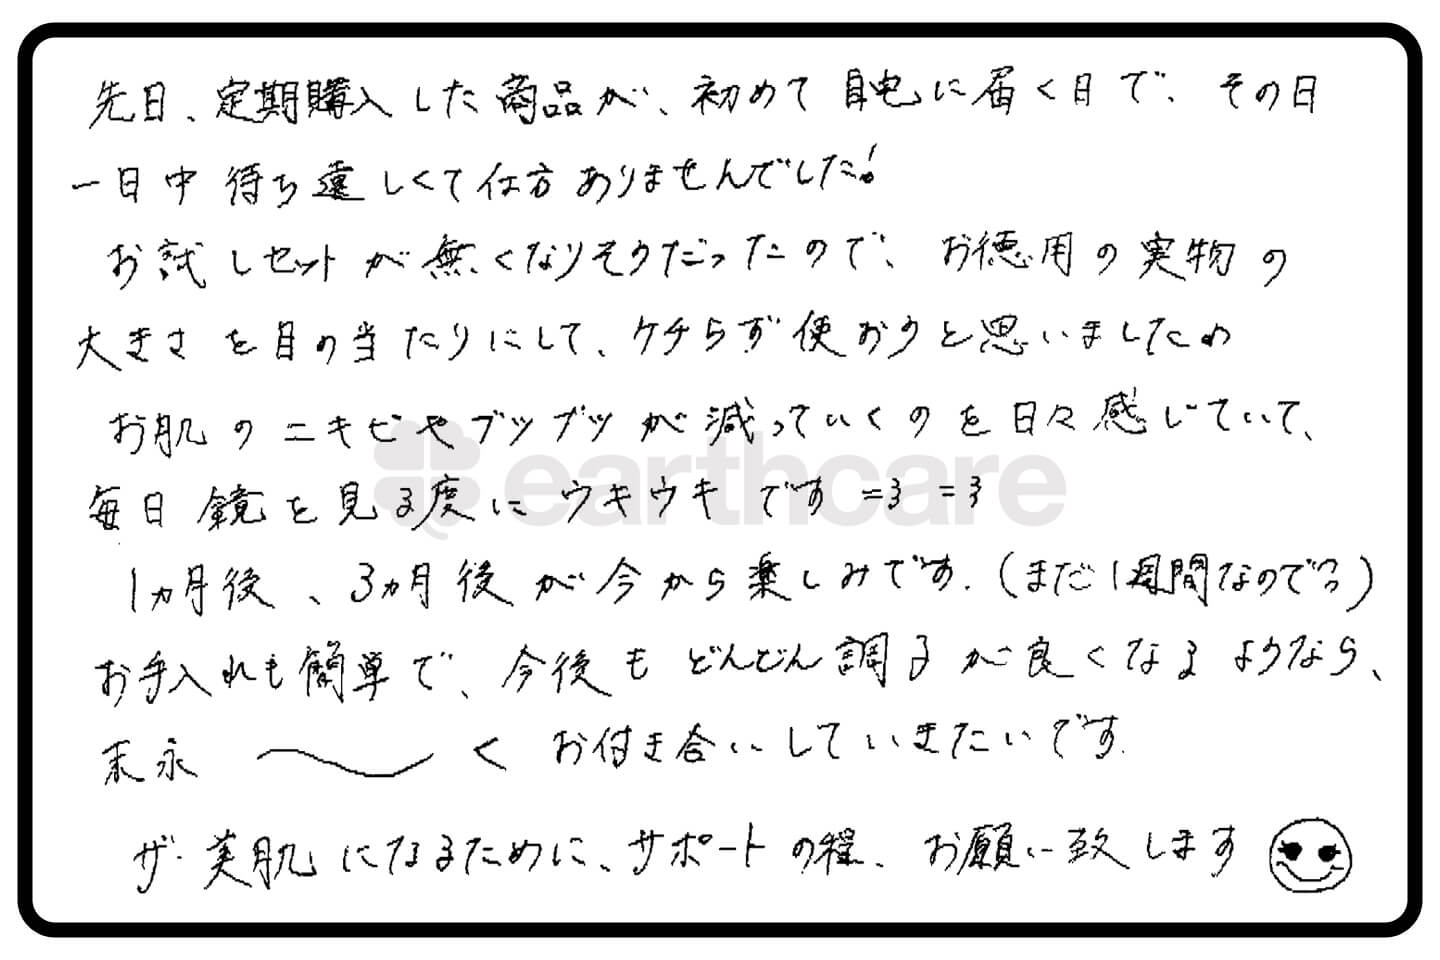 先日、定期購入した商品が、初めて自宅に届く日で、その日
一日中待ち遠しくて仕方ありませんでした!
お試しセットが無くなりそうだったので、お徳用の実物の
大きさを目の当たりにして、ケチらず使おうと思いましたため
お肌のニキビやブツブツが減っていくのを日々感じていて、
earthcare
毎日鏡を見る度にウキウキです=3 =3
1ヵ月後、3ヵ月後が今から楽しみです.(まだ1週間なのでろ)
お手入れも簡単で、今後もどんどん調子が良くなるようなら、
末永〜くお付き合いしていきたいです.
ザ・美肌になるために、サポートの程、お願い致します